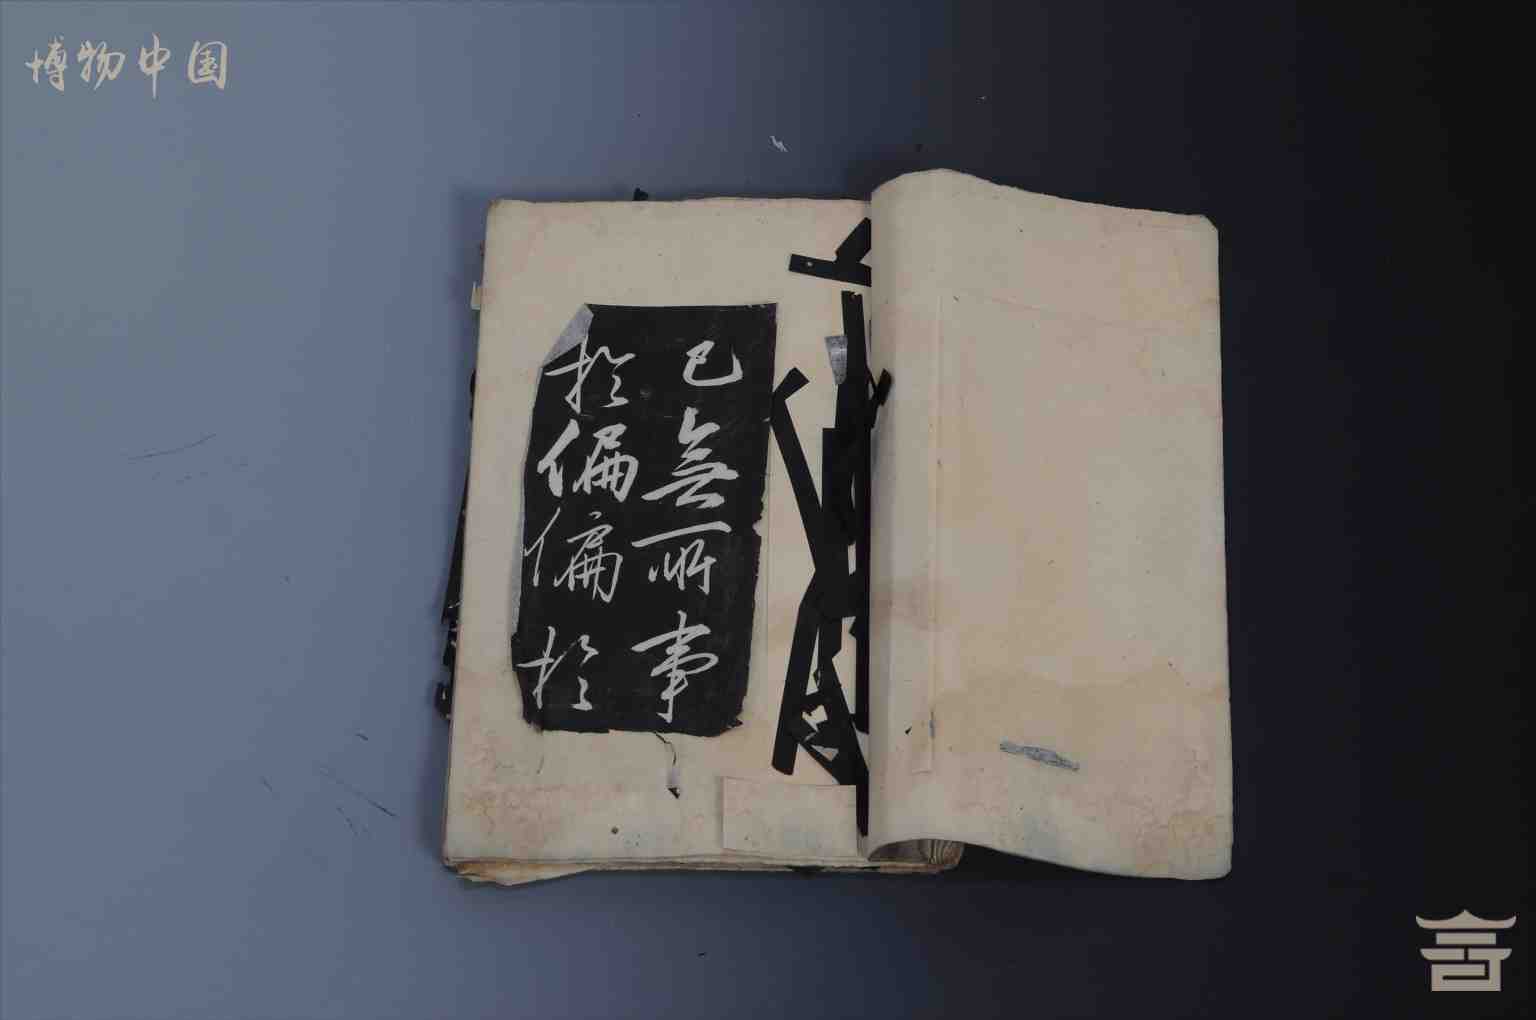 博物中国
已無所事
於偏偏於